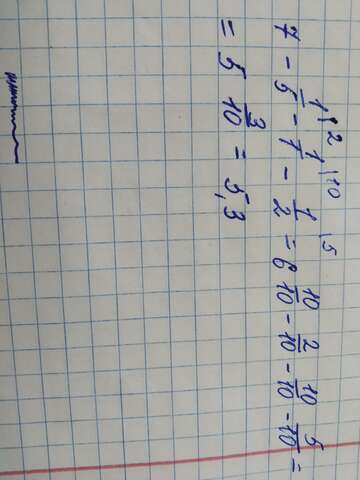 7 - 1/5 \2 - 1/1 \10 - 1/2 \5 = 6 10/10 - 2/10 - 10/10 - 5/10 =
= 5 3/10 = 5,3